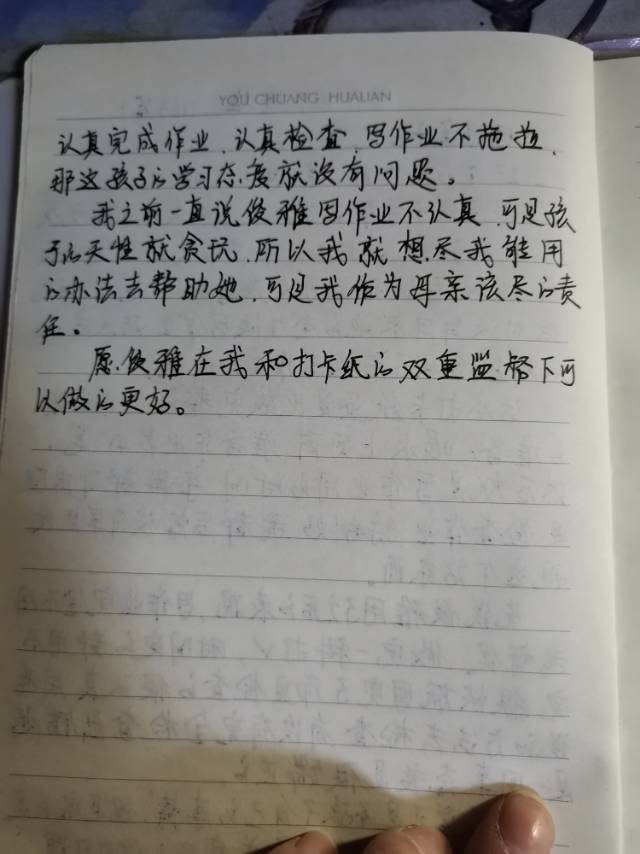 YOU CHUANG HUALIAN
认真完成作业,认真检查,写作业不拖拉,
那这孩子的学习态度就没有问题。
我之前一直说俊雅写作业不认真,可是孩
子的天性就贪玩,所以我就想尽我能用
的办法去帮助她,可是我作为母亲该尽的责
任。
愿俊雅在我和打卡纸的双重监督下可
以做的更好。